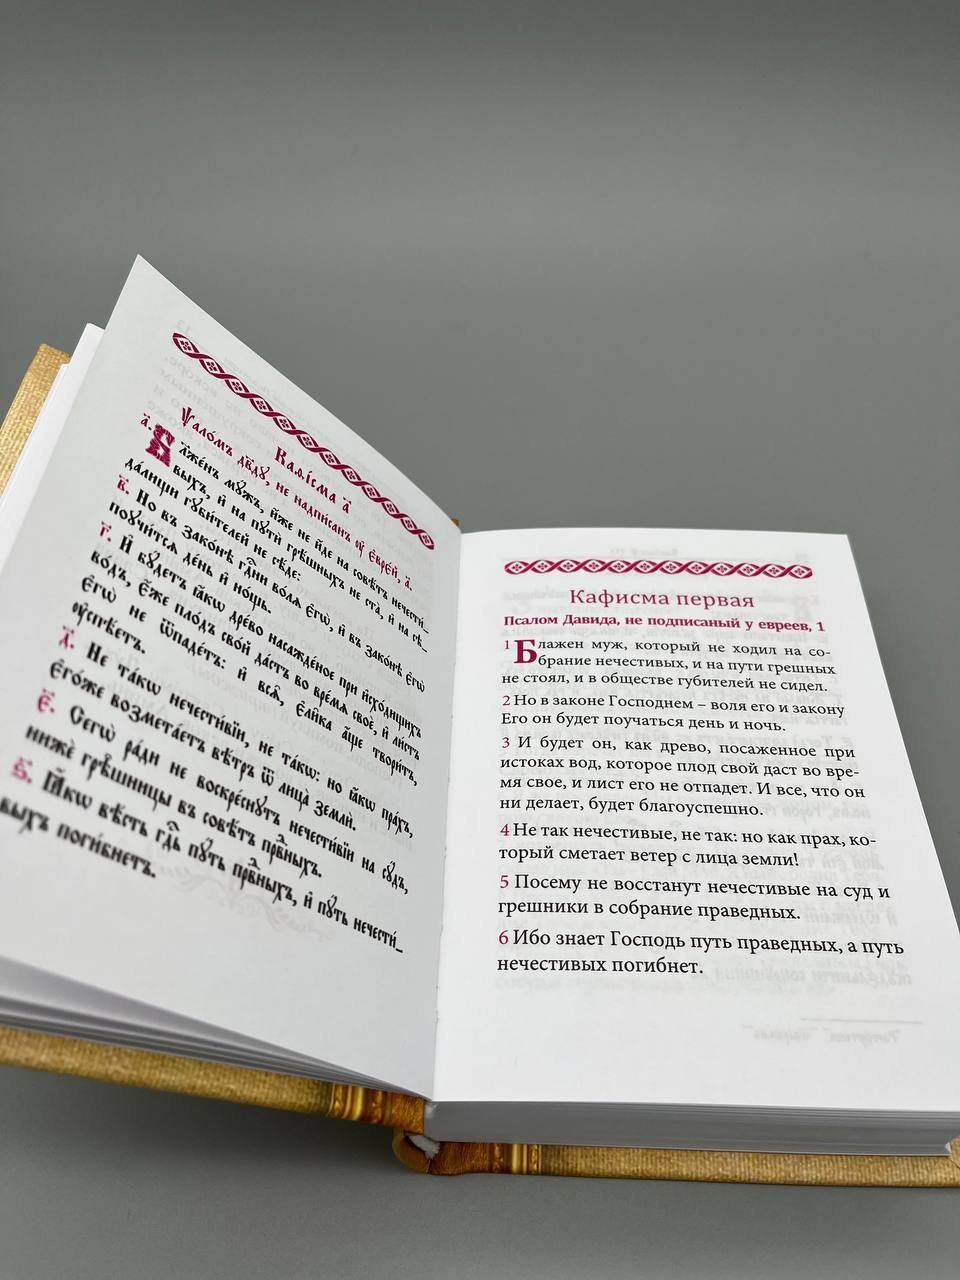 Каѳі́сма а҃
Ѱало́мъ дв҃ду, не надпи́санъ ᲂу҆ є҆вре́й, а҃.
а҃. Бл҃же́нъ мꙋ́жъ, и҆́же не и҆́де на совѣ́тъ нечести́_
выхъ, и҆ на пꙋтѝ грѣ́шныхъ не ста̀, и҆ на сѣ_
да́лищи гꙋби́телей не сѣ́де:
в҃. Но въ зако́нѣ гдⷭ҇ни во́лѧ є҆гѡ̀, и҆ въ зако́нѣ є҆гѡ̀
поꙋчи́тсѧ де́нь и҆ но́щь.
г҃. И҆ бꙋ́детъ ꙗ҆́кѡ дре́во насажде́ное при и҆схо́дищихъ
во́дъ, є҆́же пло́дъ сво́й да́стъ во вре́мѧ своѐ, и҆ ли́стъ
є҆гѡ̀ не ѿпаде́тъ: и҆ всѧ̑, є҆ли̑ка а҆́ще твори́тъ,
ᲂу҆спѣ́етъ.
д҃. Не та́кѡ нечести́вїи, не та́кѡ: но ꙗ҆́кѡ пра́хъ,
є҆го́же возмета́етъ вѣ́тръ ѿ лица̀ землѝ.
є҃. Сегѡ̀ ра́ди не воскре́снꙋтъ нечести́вїи на сꙋ́дъ,
нижѐ грѣ̑шницы въ совѣ́тъ првⷣныхъ.
ѕ҃. Ꙗ҆́кѡ вѣ́сть гдⷭ҇ь пꙋ́ть првⷣныхъ, и҆ пꙋ́ть нечести́_
выхъ поги́бнетъ.
Кафисма первая
Псалом Давида, не подписаный у евреев, 1
1 Блажен муж, который не ходил на со-
брание нечестивых, и на пути грешных
не стоял, и в обществе губителей не сидел.
2 Но в законе Господнем – воля его и закону
Его он будет поучаться день и ночь.
3 И будет он, как древо, посаженное при
истоках вод, которое плод свой даст во вре-
мя свое, и лист его не отпадет. И все, что он
ни делает, будет благоуспешно.
4 Не так нечестивые, не так: но как прах, ко-
торый сметает ветер с лица земли!
5 Посему не восстанут нечестивые на суд и
грешники в собрание праведных.
6 Ибо знает Господь путь праведных, а путь
нечестивых погибнет.